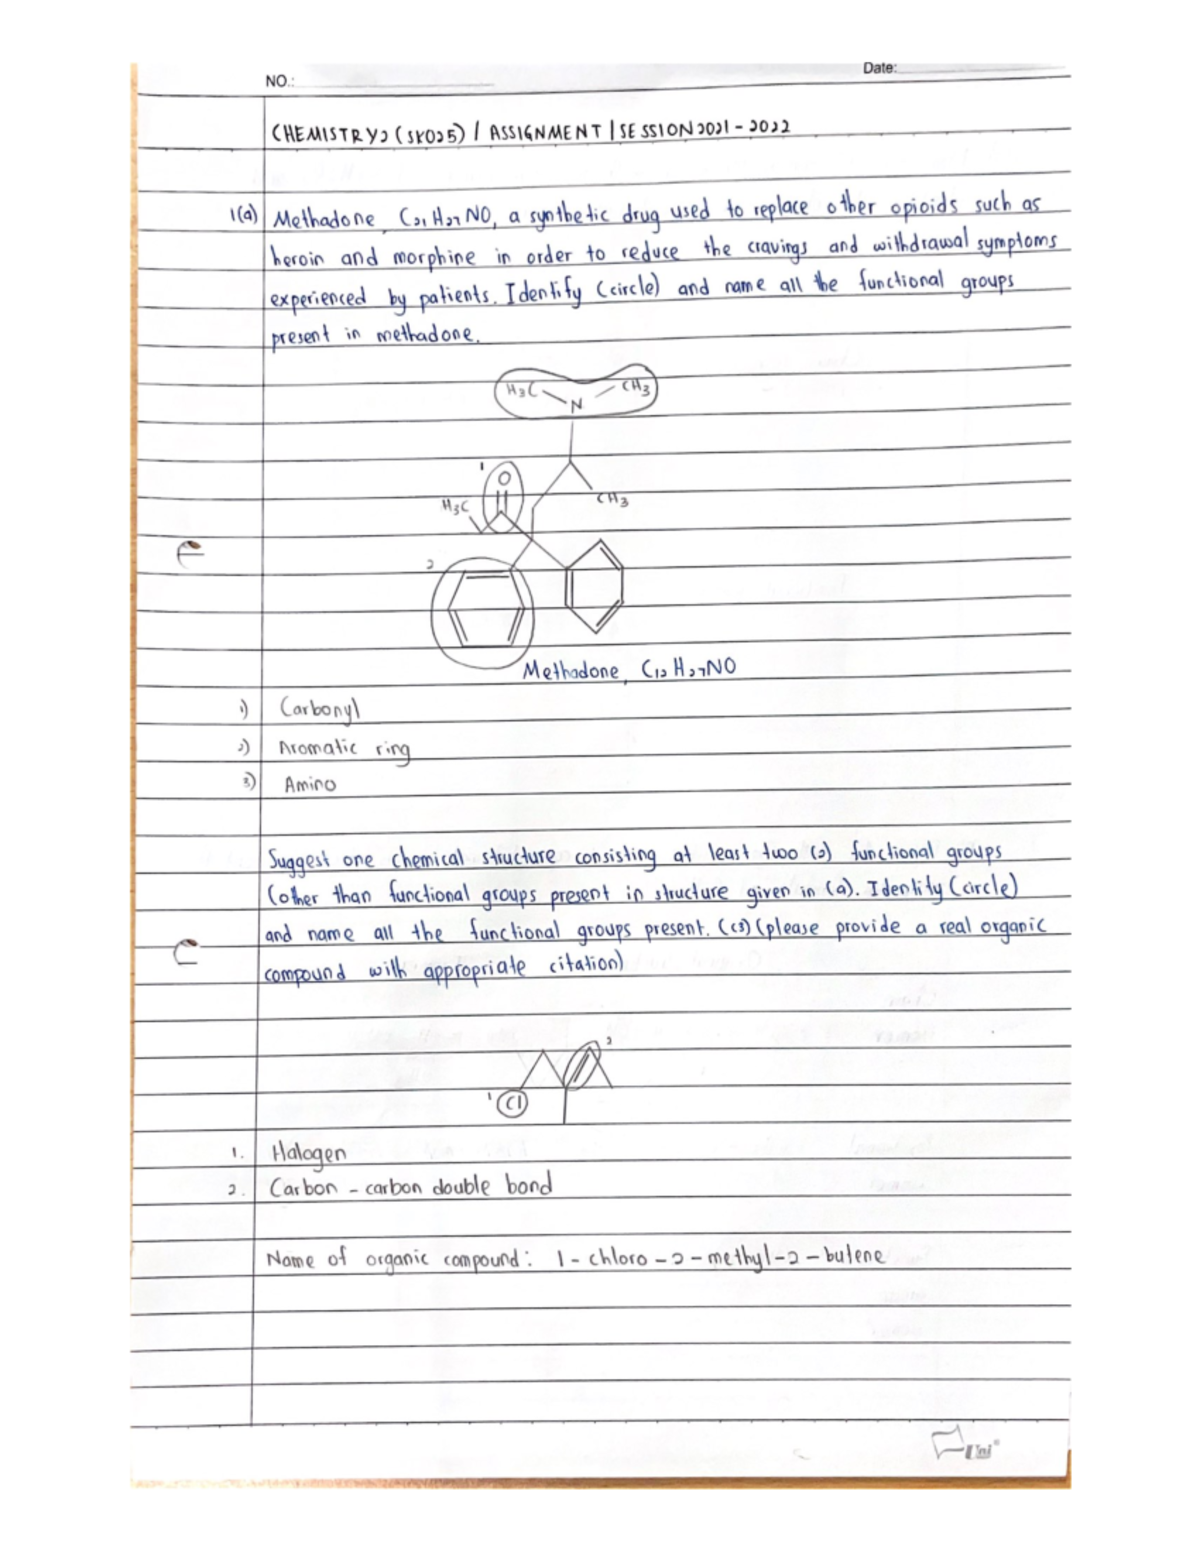 NO.:
Date:
CHEMISTRY2 (SK025) / ASSIGNMENT | SESSION 2021 - 2022
1(a) Methadone, C21H27NO, a synthetic drug used to replace other opioids such as
heroin and morphine in order to reduce the cravings and withdrawal symptoms
experienced by patients. Identify (circle) and name all the functional groups
present in methadone.
H3C CH3
N
1
O
H3C
CH3
2
Methadone, C12H27NO
1) Carbonyl
2) Aromatic ring
3) Amino
Suggest one chemical structure consisting at least two (2) functional groups
(other than functional groups present in structure given in (a). Identify (circle)
and name all the functional groups present. (C3) (please provide a real organic
compound with appropriate citation)
2
1 Cl
1. Halogen
2. Carbon - carbon double bond
Name of organic compound: 1 - chloro - 2 - methyl - 2 - butene
Uni